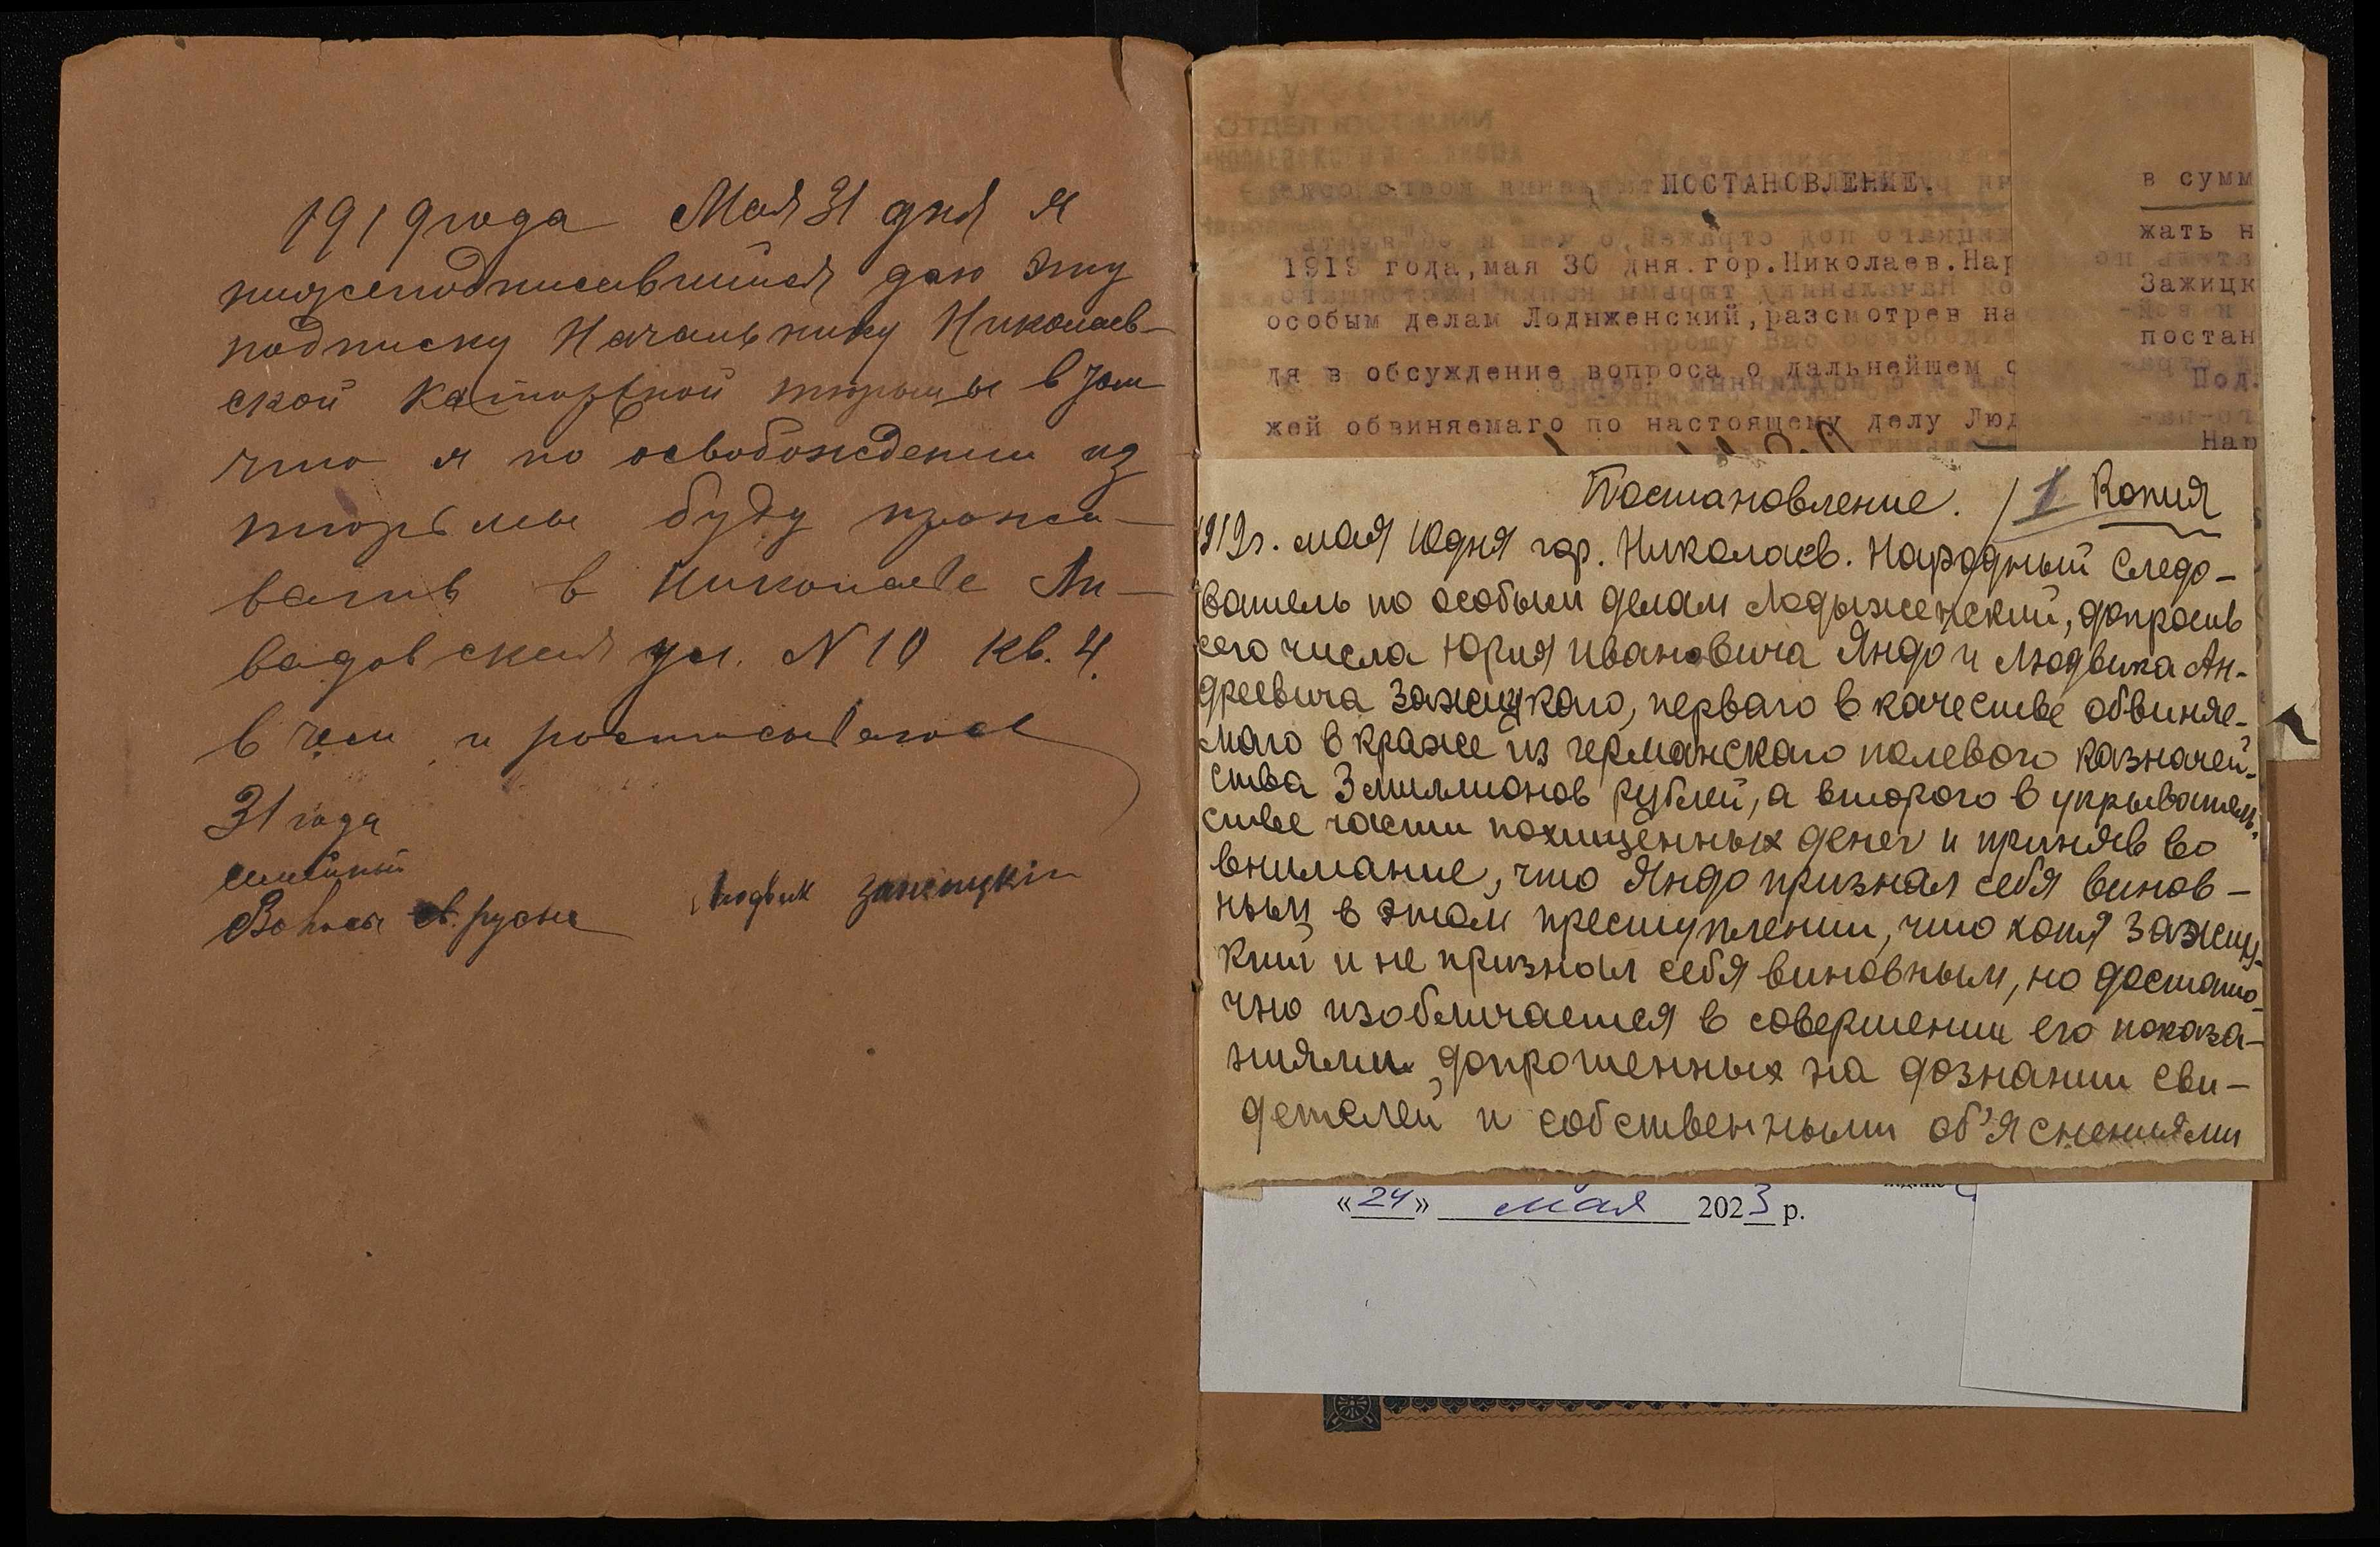 1919 года Мая 31 дня я
нижеподписавшийся даю эту
подписку Начальнику Николаев-
ской каторжной тюрьмы в том
что я по освобождении из
тюрьмы буду прожи-
вать в Николаеве Ли-
вадовская ул. N 10 кв. 4.
в чем и росписываюсь
31 года
семейный
Волосы св. русые
Людвик Зажицкiй
ПОСТАНОВЛЕНИЕ.
1919 года, мая 30 дня. гор. Николаев. Нар
особым делам Лодыженский, разсмотрев на
дя в обсуждение вопроса о дальнейшем с
жей обвиняемаго по настоящему делу Люд
в сумм
жать н
Зажицк
постан
Под.
Нар
Постановление. 1 Копия
1919г. мая 10 дня гор. Николаев. Народный Следо-
ватель по особым делам Лодыженский, допросив
сего числа Юрия Ивановича Яндо и Людвика Ан-
дреевича Зажицкаго, перваго в качестве обвиняе-
маго в краже из германскаго полевого казначей-
ства 3 миллионов рублей, а второго в укрыватель-
стве части похищенных денег и приняв во
внимание, что Яндо признал себя винов-
ным в этом преступлении, что хотя Зажиц-
кий и не признал себя виновным, но достато-
чно изобличается в совершении его показа-
ниями, допрошенных на дознании сви-
детелей и собственными об'яснениями
«24» мая 2023 р.